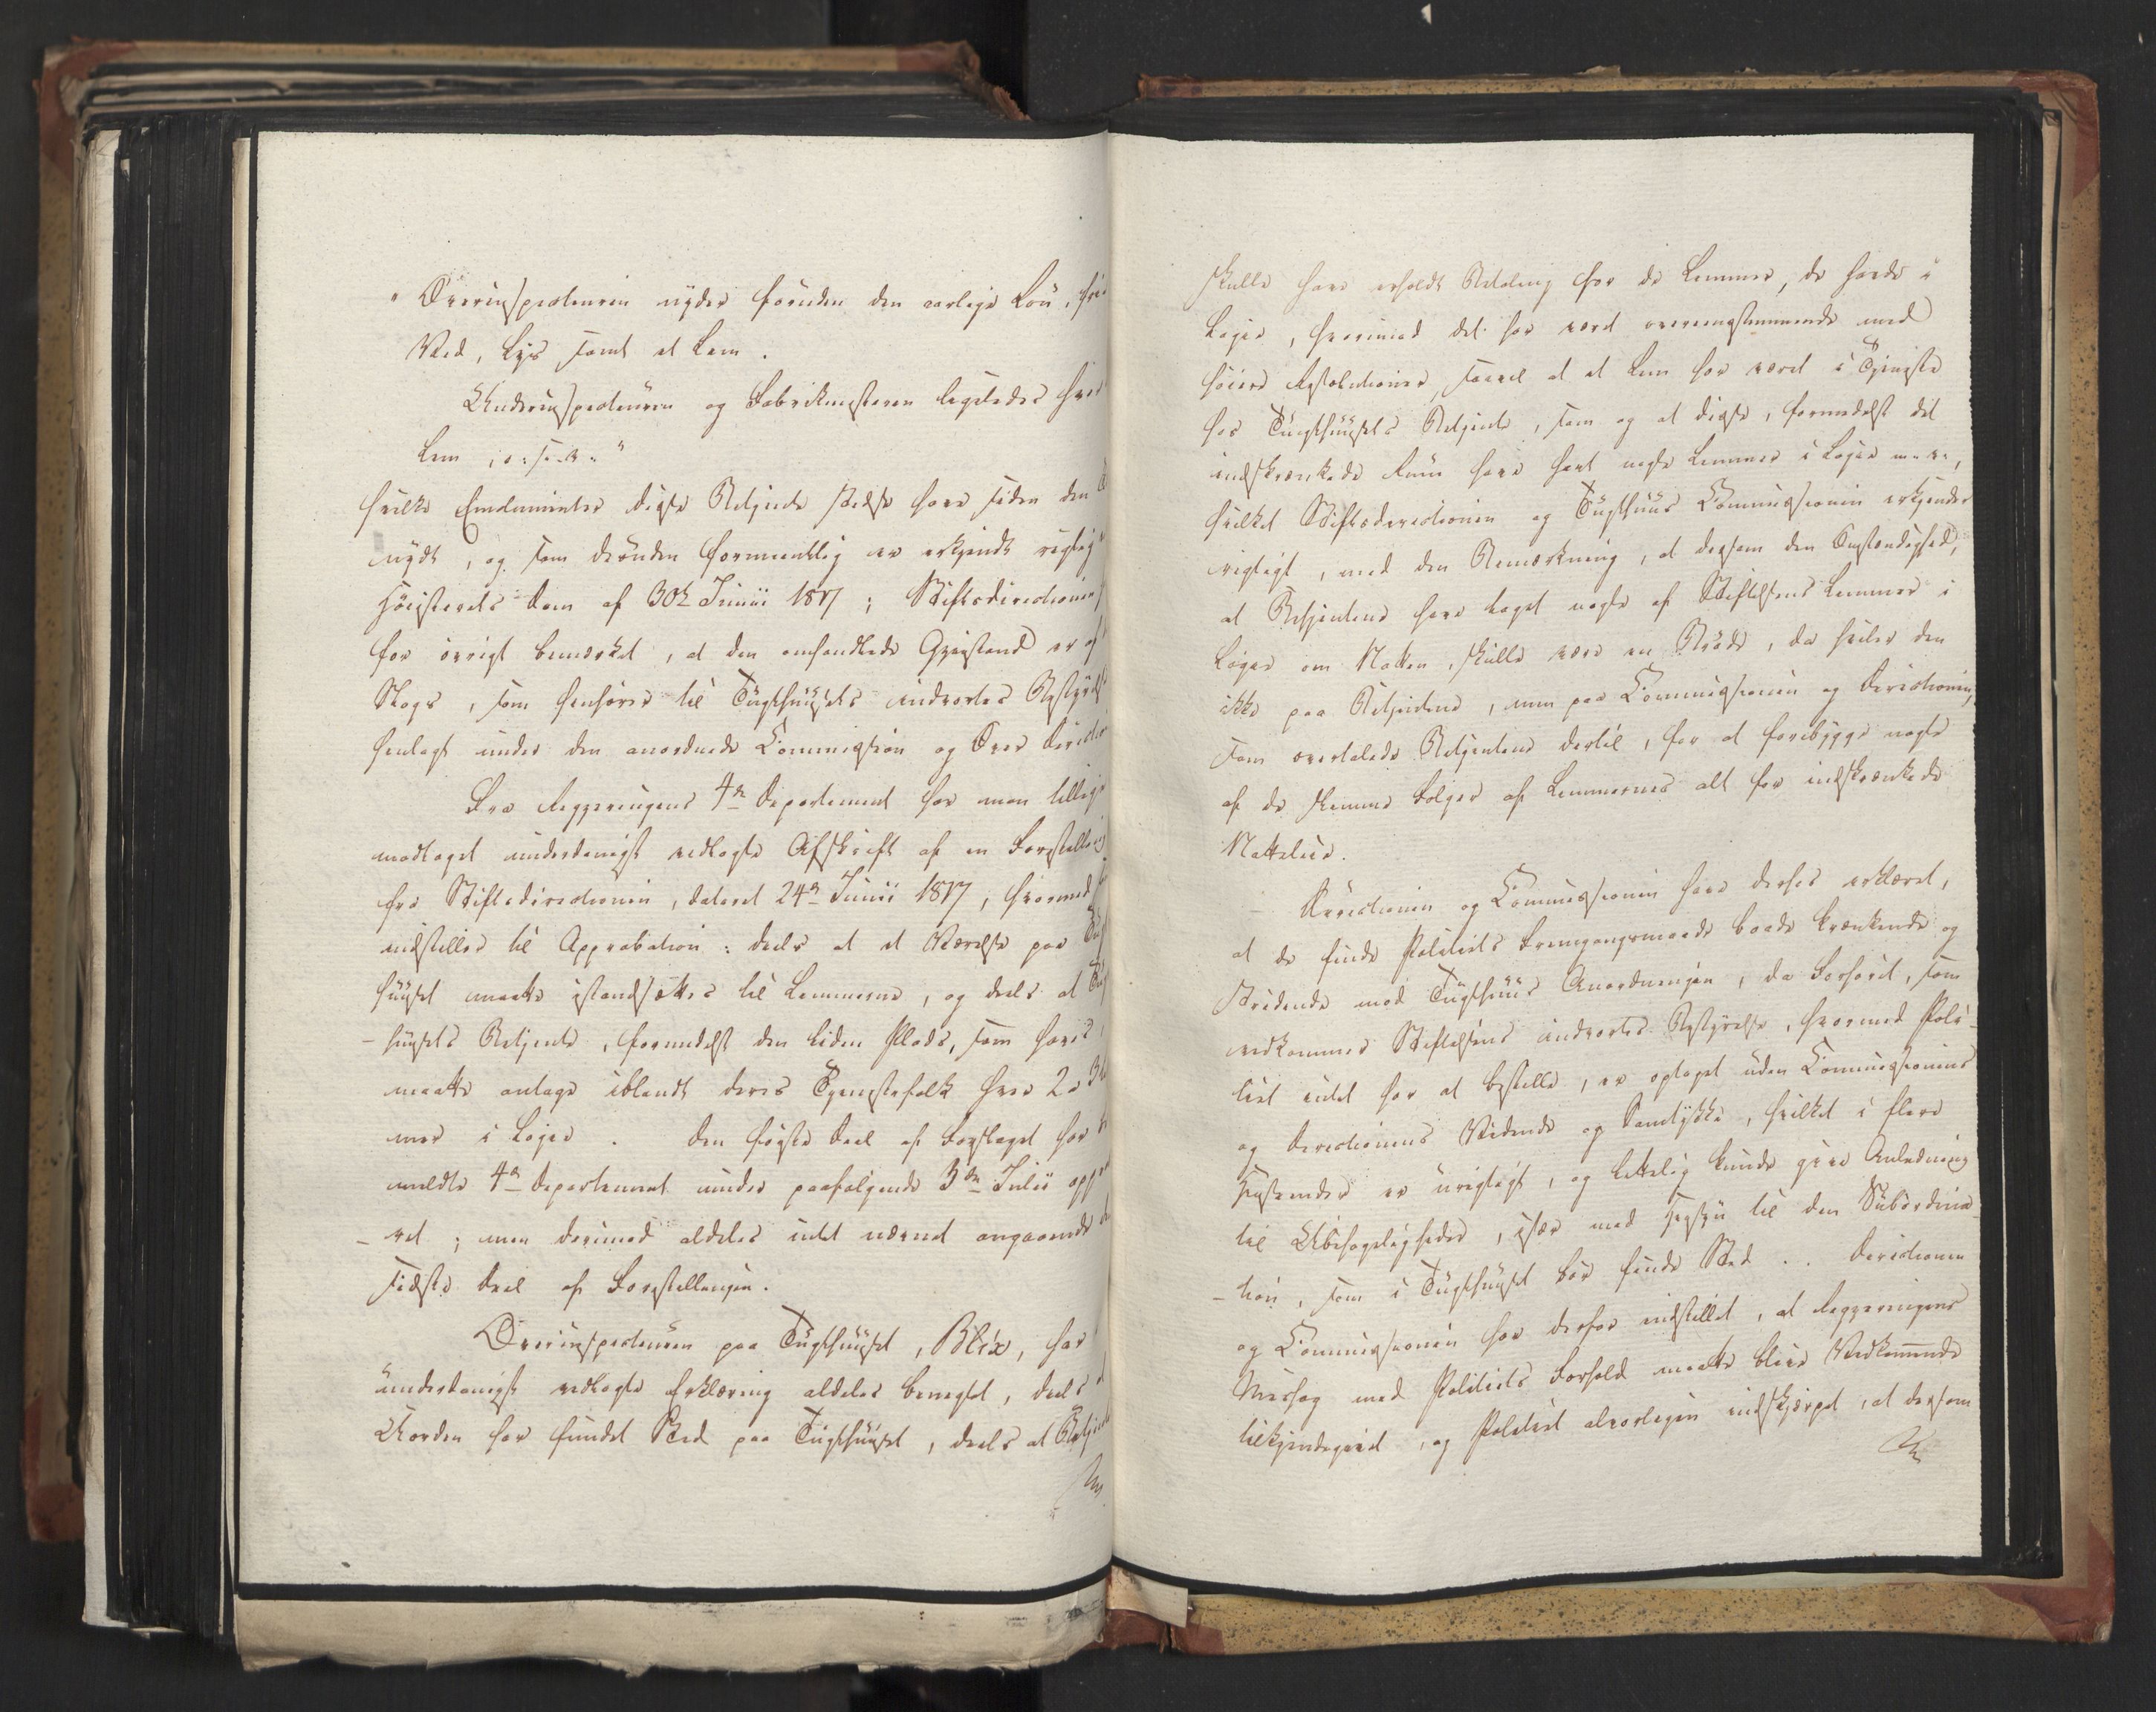 "Overinspecteuren nyder foruden den aarlige Løn, frie
Ved, Lys samt et Lem.
Underinspecteuren og Fabrikmesteren ligeledes hver
Lem, o: s: v:"
hvilke Emolumenter disse Betjente stedse have siden den
nydt, og som desuden formeentlig er erkjendt rigtig
Høiesterets Dom af 30te Junii 1817; Stiftsdirectionen
for øvrigt bemærket, at den omhandlede Gjenstand er af
Slags, som henhører til Tugthuusets indvortes Bestyrelse
henlagt under den anordnede Commission og Over Direction
Fra Regjeringens 4de Departement har man tillige
modtaget underdanigst vedlagte Afskrift af en Forestilling
fra Stiftsdirectionen, dateret 24de Junii 1817, hvormed
indstilles til Approbation: deels at et Værelse paa Tugt
huuset maatte istandsættes til Lemmerne, og deels at Tugt
-huusets Betjente, formedelst den liden Plads, som haves,
maatte antage iblandt deres Tjenestefolk hver 2 a 3 Lem
mer i Logie. Den første Deel af Forslaget har
meldte 4de Departement under paafølgende 3die Julii app
-ret; men derimod aldeles intet nævnt angaaende den
sidste Deel af Forestillingen.
Overinspecteuren paa Tugthuuset, Blix, har
underdanigst vedlagte Erklæring aldeles benegtet, deels at
Uorden har fundet Sted paa Tugthuuset, deels at Betjente
skulle have erholdt Betaling for de Lemmer, de havde i
Logie, hvorimod det har været overeensstemmende med
høiere Resolutioner, saavel at et Lem har været i Tjeneste
hos Tugthuusets Betjente, som og at disse, formedelst det
indskrænkede Rum have havt nogle Lemmer i Logie m. v.,
hvilket Stiftsdirectionen og Tugthuus Commissionen erkjender
rigtigt, med den Bemærkning, at dersom den Omstændighed,
at Betjentene have taget nogle af Stiftelsens Lemmer i
Logie om Natten, skulle være en Brøde, da hviler den
ikke paa Betjentene, men paa Commissionen og Directionen,
som overtalede Betjentene dertil, for at forebygge nogle
af de slemme Følger af Lemmernes alt for indskrænkede
Natteleie.
Directionen og Commissionen have derhos erklæret,
at de finde Politiets Fremgangsmaade baade krænkende og
stridende mod Tugthuus Anordningen, da Forhøret, som
vedkommer Stiftelsens indvortes Bestyrelse, hvormed Poli-
tiet intet har at bestille, er optaget uden Commissionens
og Directionens Vidende og Samtykke, hvilket i flere
Henseender er urigtigt, og lettelig kunde give Anledning
til Ubehageligheder, især med Hensyn til den Subordina-
-tion, som i Tugthuuset bør finde Sted. Directionen
og Commissionen har derfor indstillet, at Regjeringens
Mishag med Politiets Forhold maatte blive Vedkommende
tilkjendegivet, og Politiet alvorligen indskjærpet, at dersom